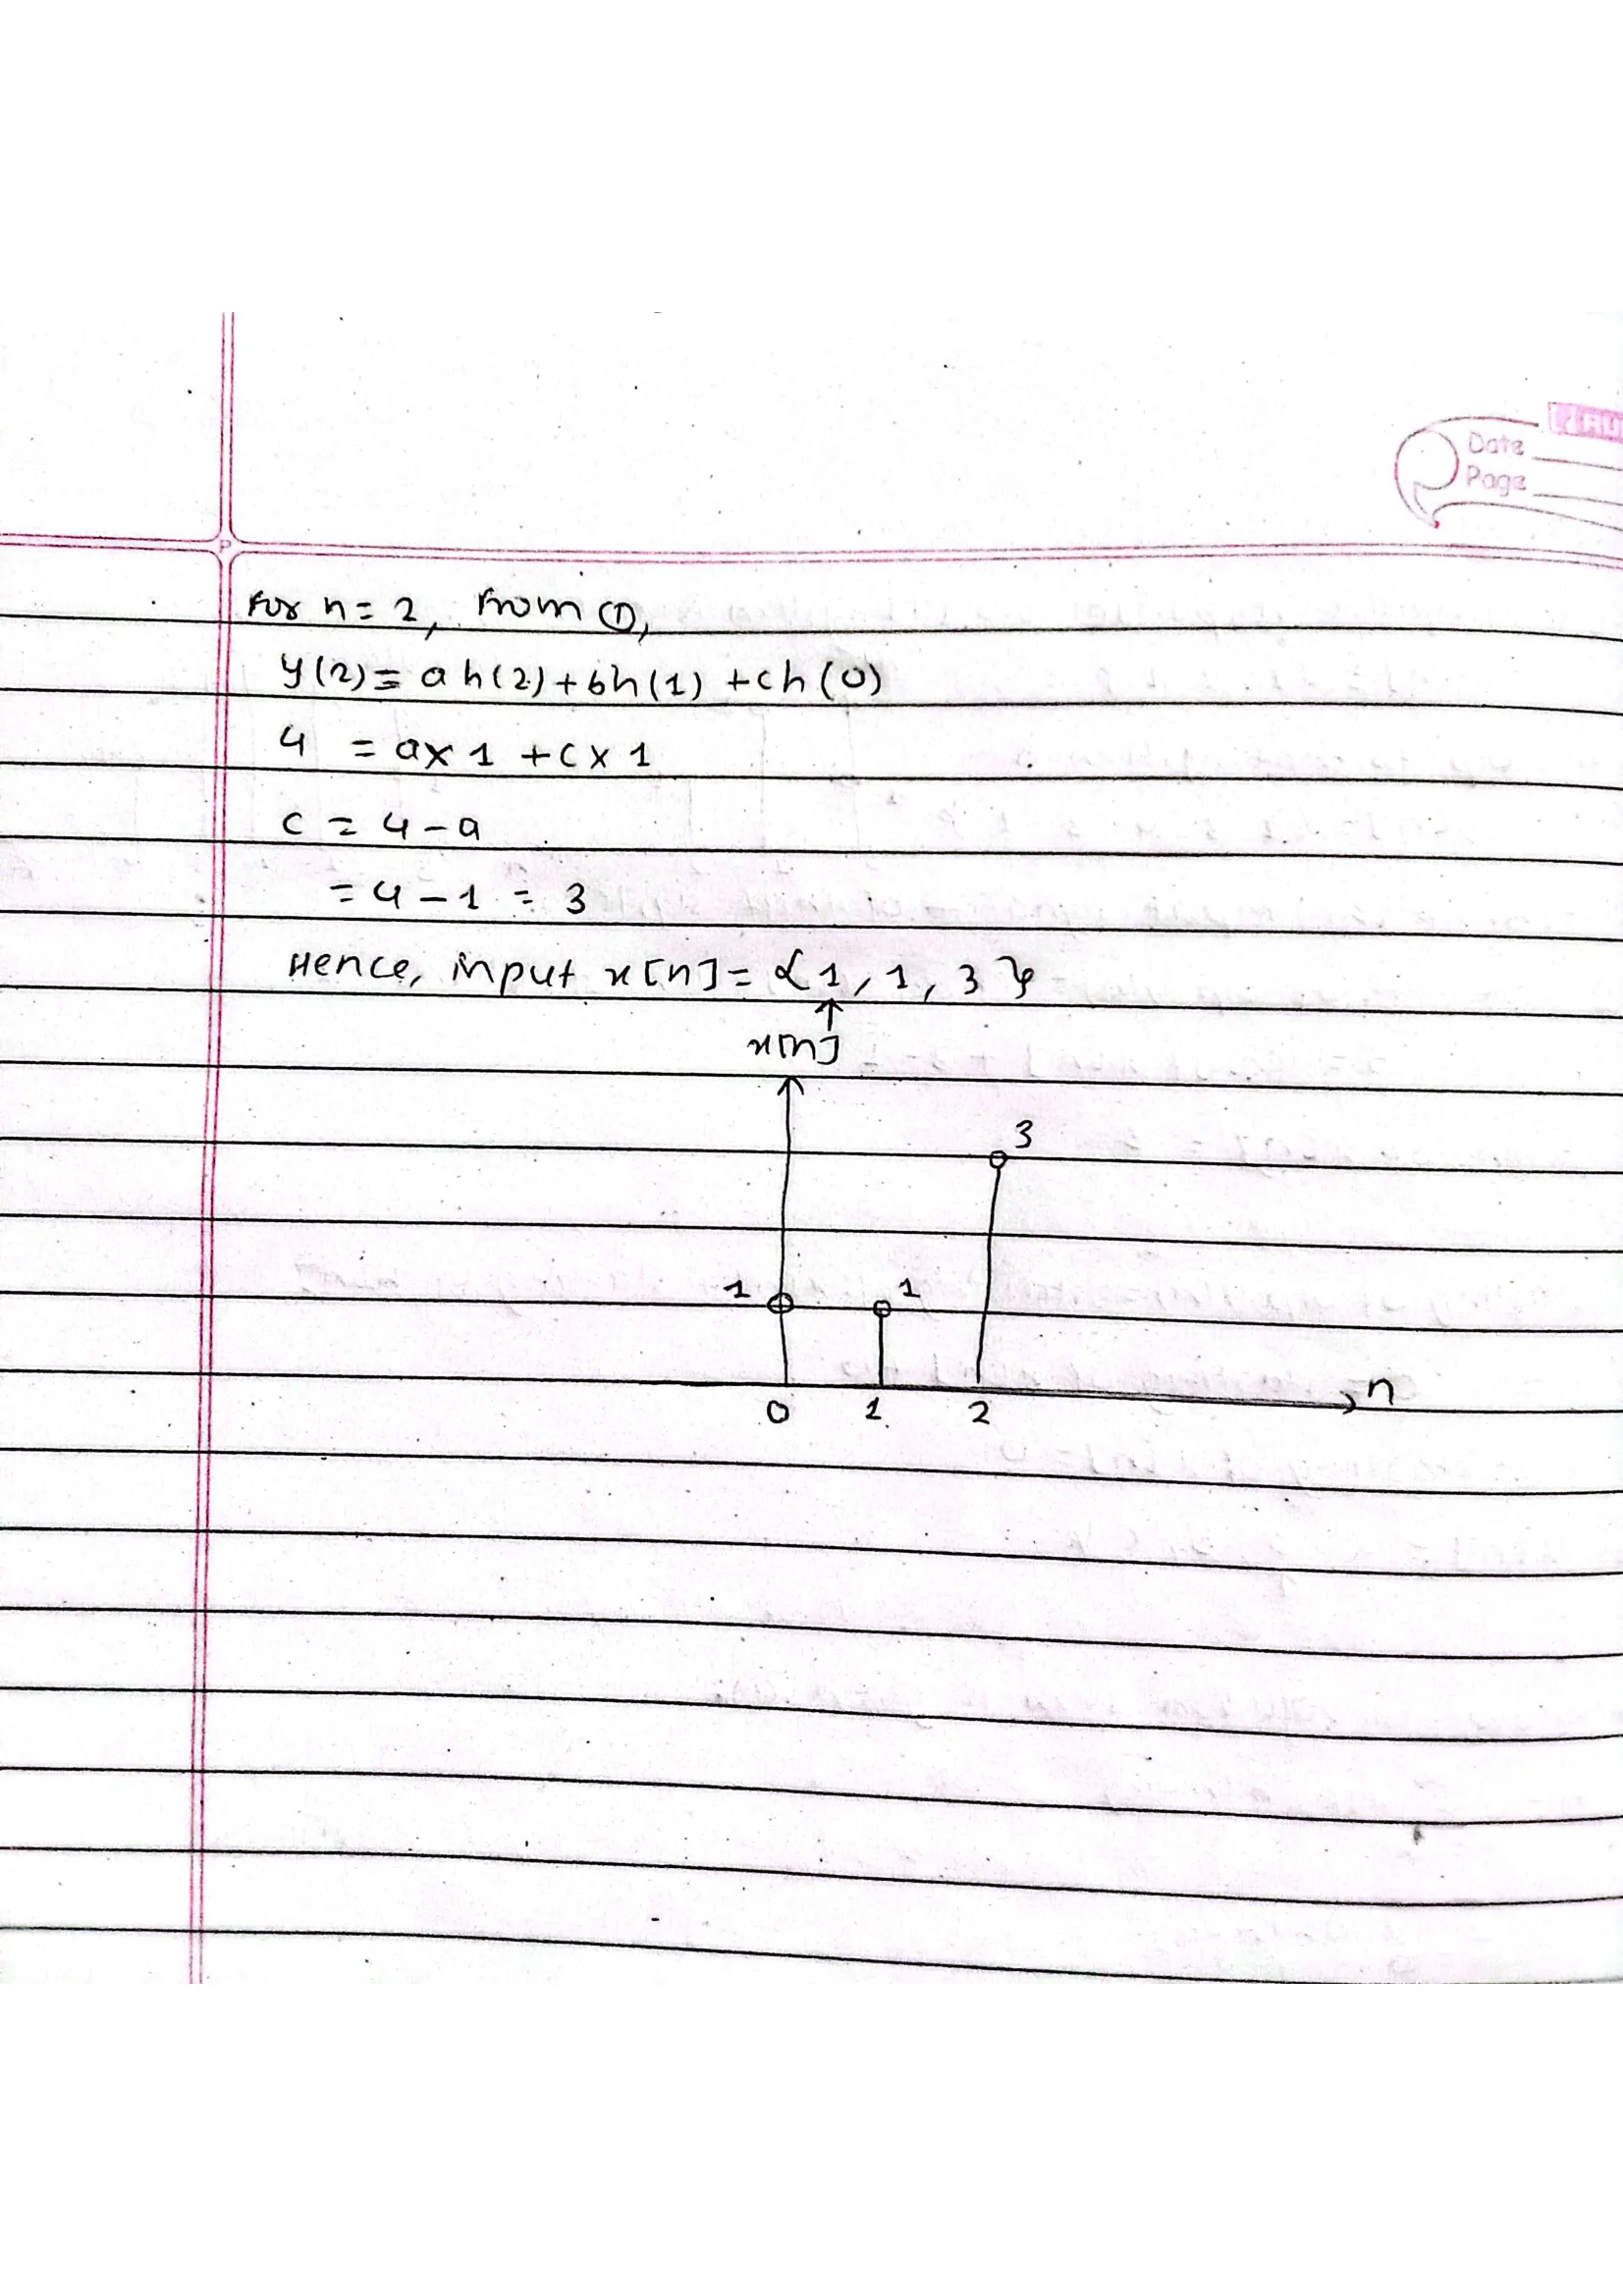 Date
Page
P
For n = 2, from ①,
y(2) = ah(2) + bh(1) + ch(0)
4 = a × 1 + c × 1
c = 4 - a
= 4 - 1 = 3
Hence, input x[n] = {1, 1, 3}
↑
x[n]
3
1 1
n
0 1 2